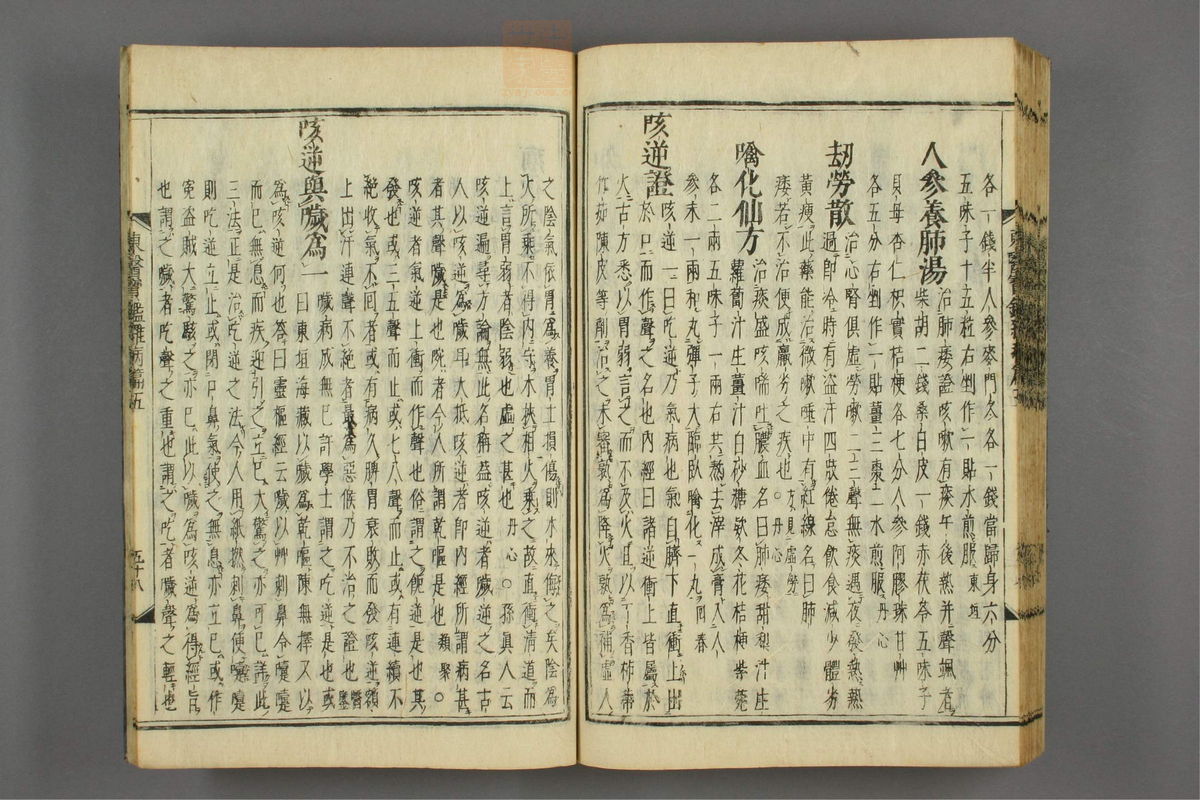 各一錢半人參麥門冬各一錢當歸身六分
五味子十五粒右剉作一貼水煎服東垣
人參養肺湯
治肺痿證咳嗽有痰午後熱并聲颯者
柴胡二錢桑白皮一錢赤茯苓五味子
貝母杏仁枳實桔梗各七分人參阿膠珠甘艸
各五分右剉作一貼薑三棗二水煎服丹心
劫勞散
治心腎俱虛勞嗽二三聲無痰遇夜發熱熱
過即冷時有盜汗四肢倦怠飲食減少體劣
黃瘦此藥能治微嗽唾中有紅線名曰肺
痿若不治便成羸劣之疾也○方見虛勞
噙化仙方
治痰盛咳喘吐膿血名曰肺痿甜梨汁生
蘿蔔汁生薑汁白砂糖欵冬花桔梗紫菀
各二兩五味子一兩右共熬去滓成膏入人
參末一兩和丸彈子大臨臥噙化一丸回春
咳逆證
咳逆一曰吃逆乃氣病也氣自臍下直衝上出
於口而作聲之名也內經曰諸逆衝上皆屬於
火古方悉以胃弱言之而不及火且以丁香柿蒂
竹茹陳皮等劑治之未審孰爲降火孰爲補虛人
之陰氣依胃爲養胃土損傷則木來侮之矣陰爲
火所乘不得內守木挾相火乘之故直衝清道而
上言胃弱者陰弱也虛之甚也丹心○孫眞人云
咳逆遍尋方論無此名稱蓋咳逆者噦逆之名古
人以咳逆爲噦耳大抵咳逆者即內經所謂病甚
者其聲噦是也噦者今人所謂乾嘔是也類聚○
咳逆者氣逆上衝而作聲也俗謂之䭇逆是也其
發也或三五聲而止或七八聲而止或有連續不
絶收氣不回者或有病久脾胃衰敗而發咳逆額
上出汗連聲不絶者最爲惡候乃不治之證也醫鑑
咳逆與噦爲一
噦病成無已許學士謂之吃逆是也或
曰東垣海藏以噦爲乾嘔陳無擇又以
爲咳逆何也答曰靈樞經云噦以艸刺鼻令嚔嚔
而已無息而疾迎引之立已大驚之亦可已詳此
三法正是治吃逆之法今人用紙撚刺鼻便嚔嚔
則吃逆立止或閉口鼻氣使之無息亦立已或作
寃盜賊大驚駭之亦已此以噦爲咳逆爲得經旨
也謂之噦者吃聲之重也謂之吃者噦聲之輕也
東醫寶鑑雜病篇五
五十八